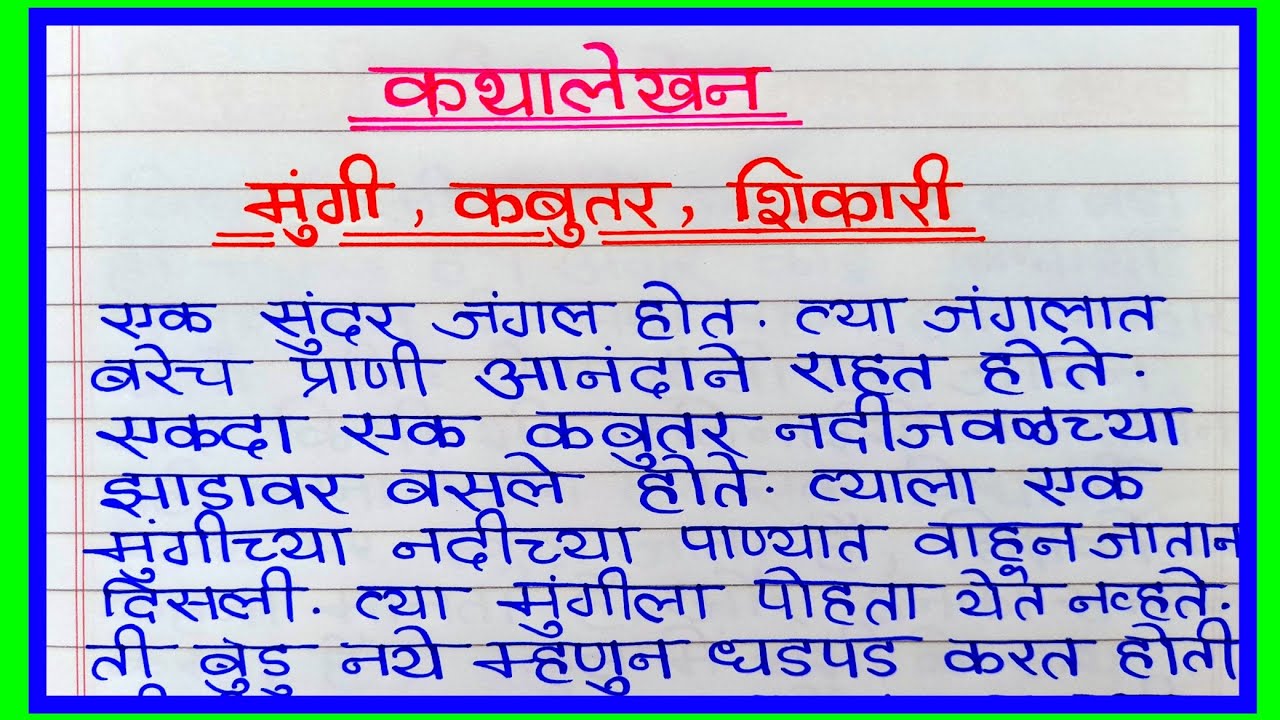 कथालेखन
मुंगी, कबुतर, शिकारी
एक सुंदर जंगल होत. त्या जंगलात
बरेच प्राणी आनंदाने राहत होते.
एकदा एक कबुतर नदीजवळच्या
झाडावर बसले होते. त्याला एक
मुंगीच्या नदीच्या पाण्यात वाहून जातान
दिसली. त्या मुंगीला पोहता येत नव्हते.
ती बुडु नये म्हणुन धडपड करत होती